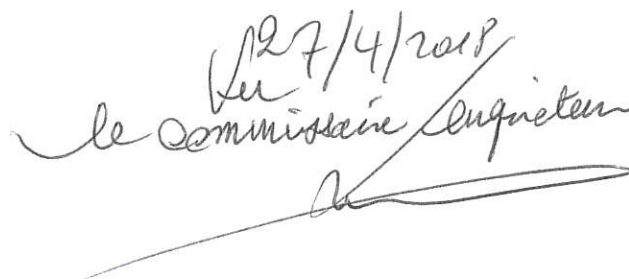 27/4/2018
Vu
le commissaire enquêteur